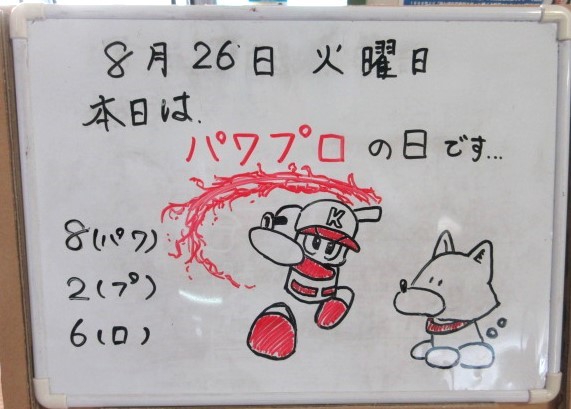 8月26日 火曜日
本日は、
パワプロの日です...
K
8(パワ)
2(プ)
6(ロ)